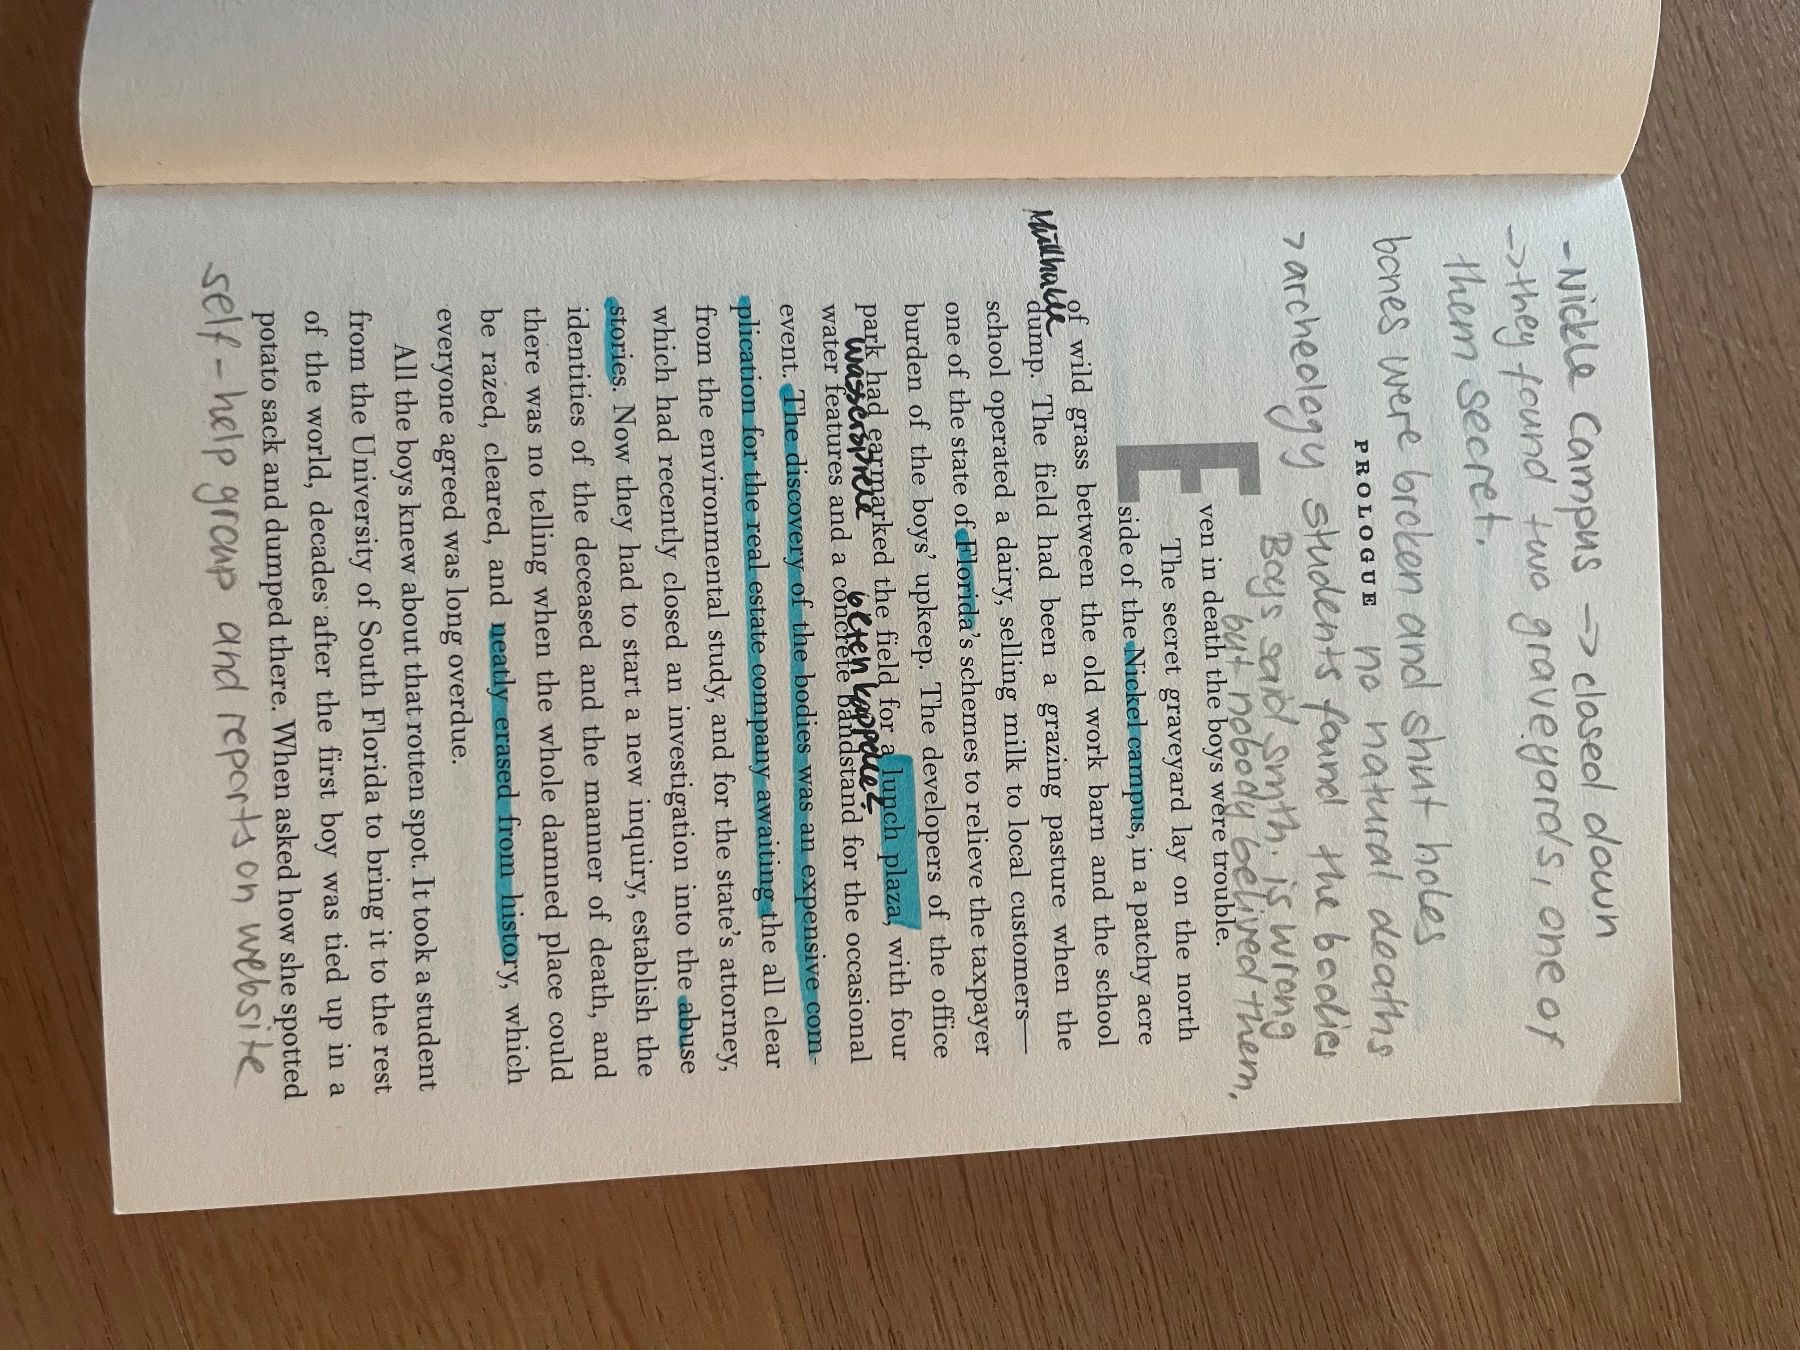 -Nickle Campus -> closed down
->they found two graveyards, one of
them secret.
bones were broken and shut holes
PROLOGUE no natural deaths
> archeology students found the bodies
Boys said smth. is wrong
but nobody belived them.
Even in death the boys were trouble.
The secret graveyard lay on the north
side of the Nickel campus, in a patchy acre
of wild grass between the old work barn and the school
Müllhalde
dump. The field had been a grazing pasture when the
school operated a dairy, selling milk to local customers—
one of the state of Florida's schemes to relieve the taxpayer
burden of the boys' upkeep. The developers of the office
park had earmarked the field for a lunch plaza, with four
wasserspiele
water features and a concrete bandstand for the occasional
event. The discovery of the bodies was an expensive com-
plication for the real estate company awaiting the all clear
from the environmental study, and for the state's attorney,
which had recently closed an investigation into the abuse
stories. Now they had to start a new inquiry, establish the
identities of the deceased and the manner of death, and
there was no telling when the whole damned place could
be razed, cleared, and neatly erased from history, which
everyone agreed was long overdue.
All the boys knew about that rotten spot. It took a student
from the University of South Florida to bring it to the rest
of the world, decades after the first boy was tied up in a
potato sack and dumped there. When asked how she spotted
self-help group and reports on website